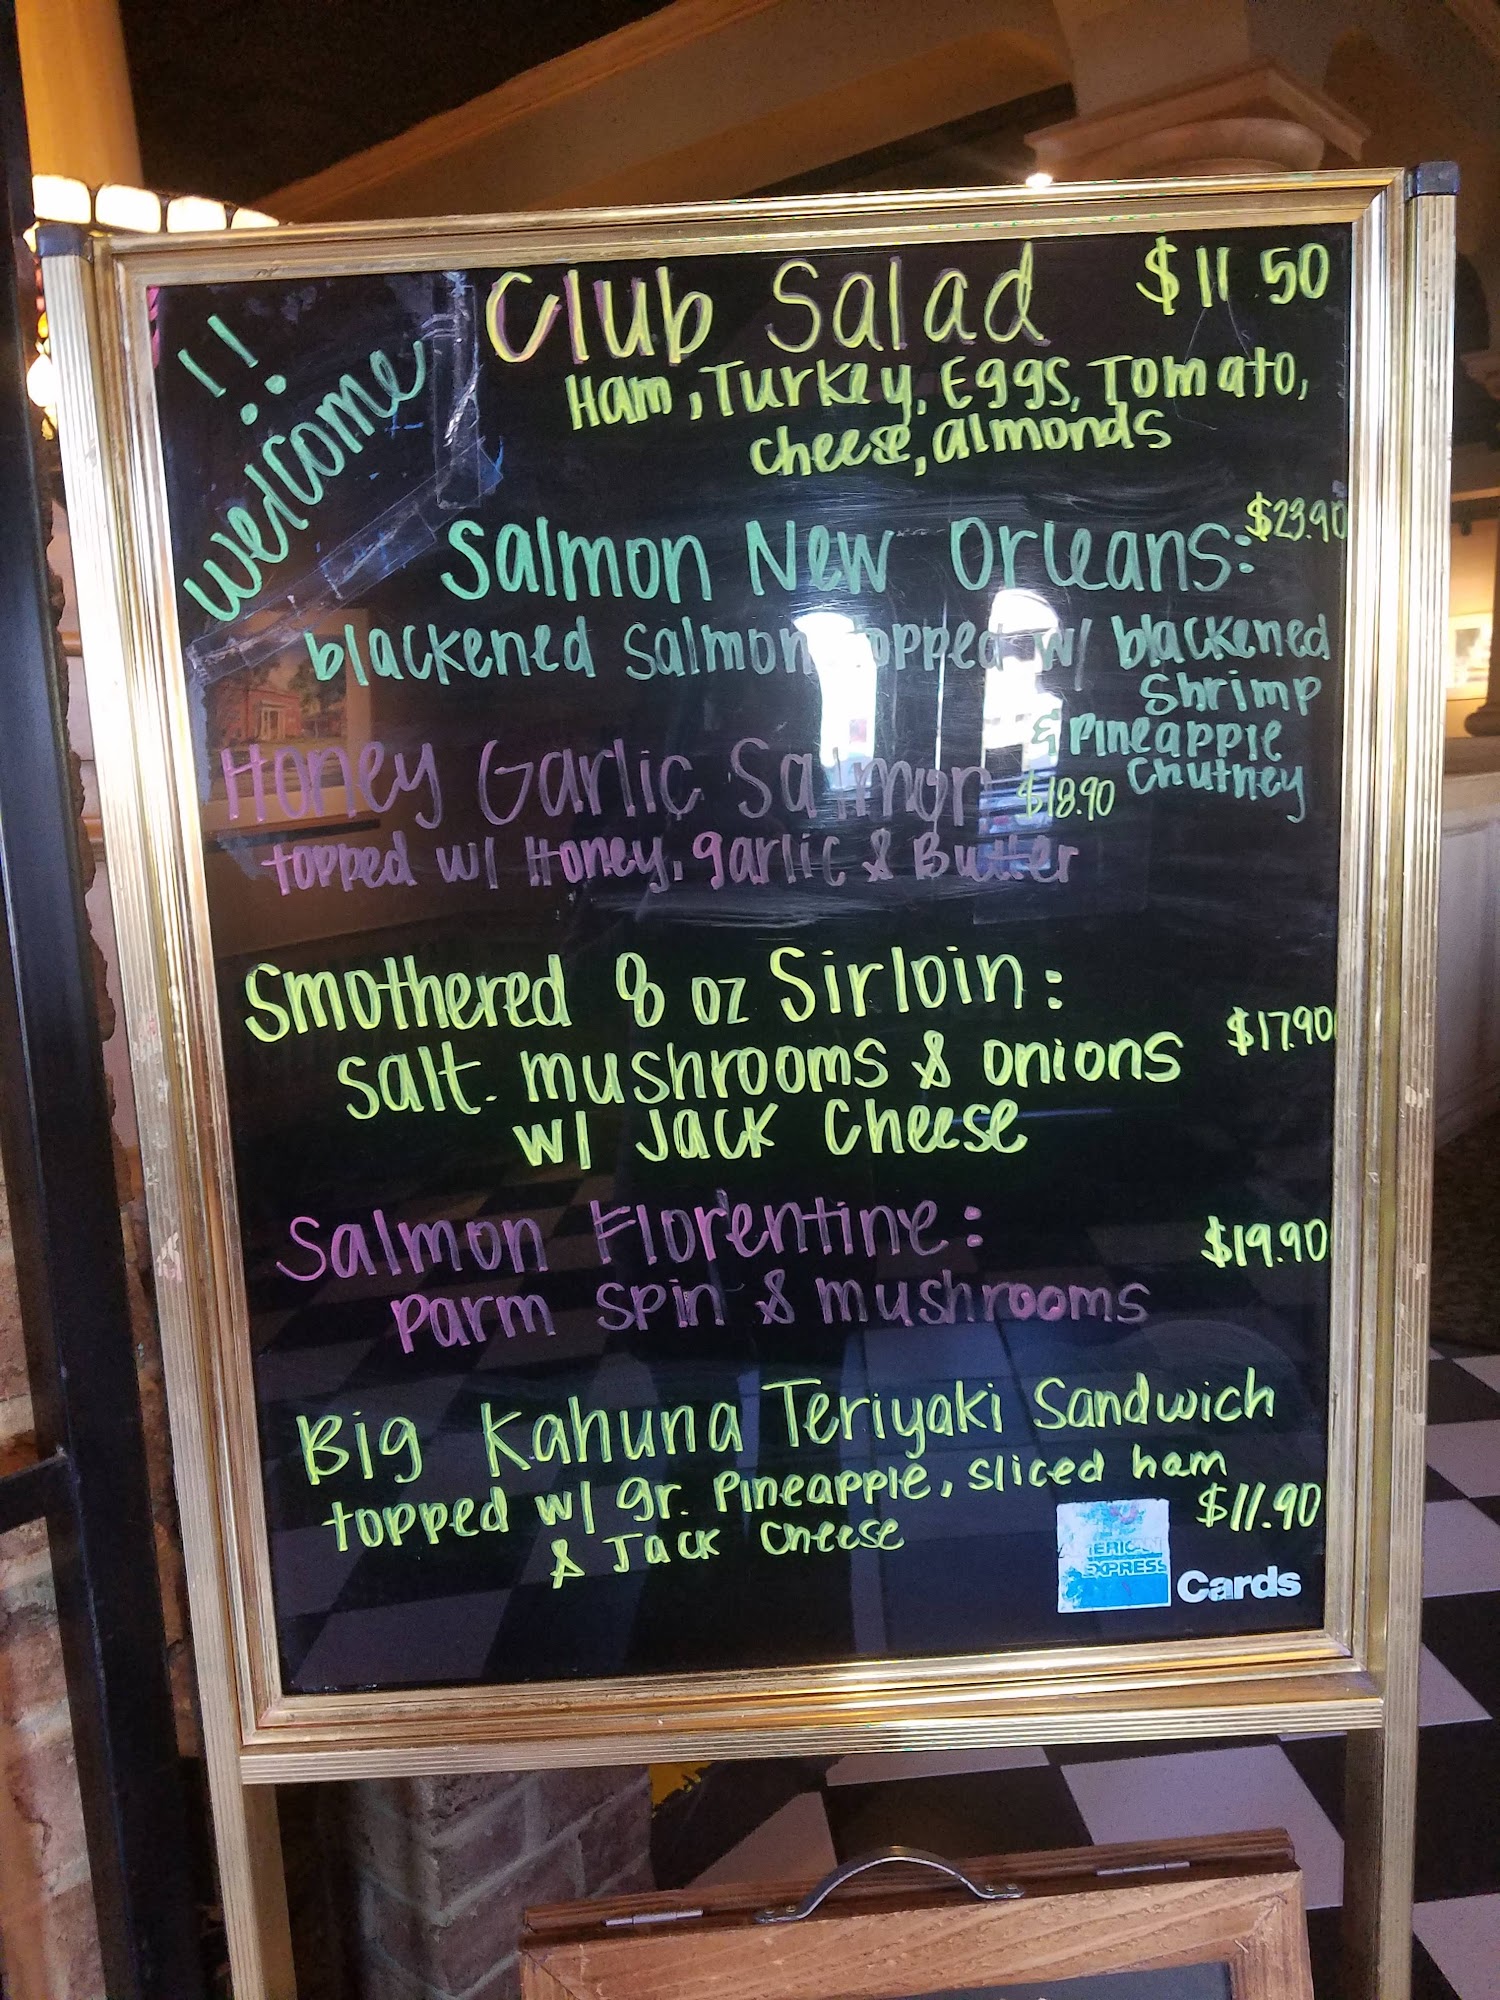 welcome!!
Club Salad $11.50
Ham, Turkey, Eggs, Tomato,
cheese, almonds
Salmon New Orleans: $23.90
blackened salmon topped w/ blackened
shrimp
& Pineapple
Chutney
Honey Garlic Salmon $18.90
topped w/ Honey, garlic & Butter
Smothered 8 oz Sirloin:
salt. mushrooms & onions $17.90
w/ Jack Cheese
Salmon Florentine: $19.90
parm spin & mushrooms
Big Kahuna Teriyaki Sandwich
topped w/ gr. Pineapple, sliced ham
& Jack Cheese $11.90
AMERICAN
EXPRESS
Cards